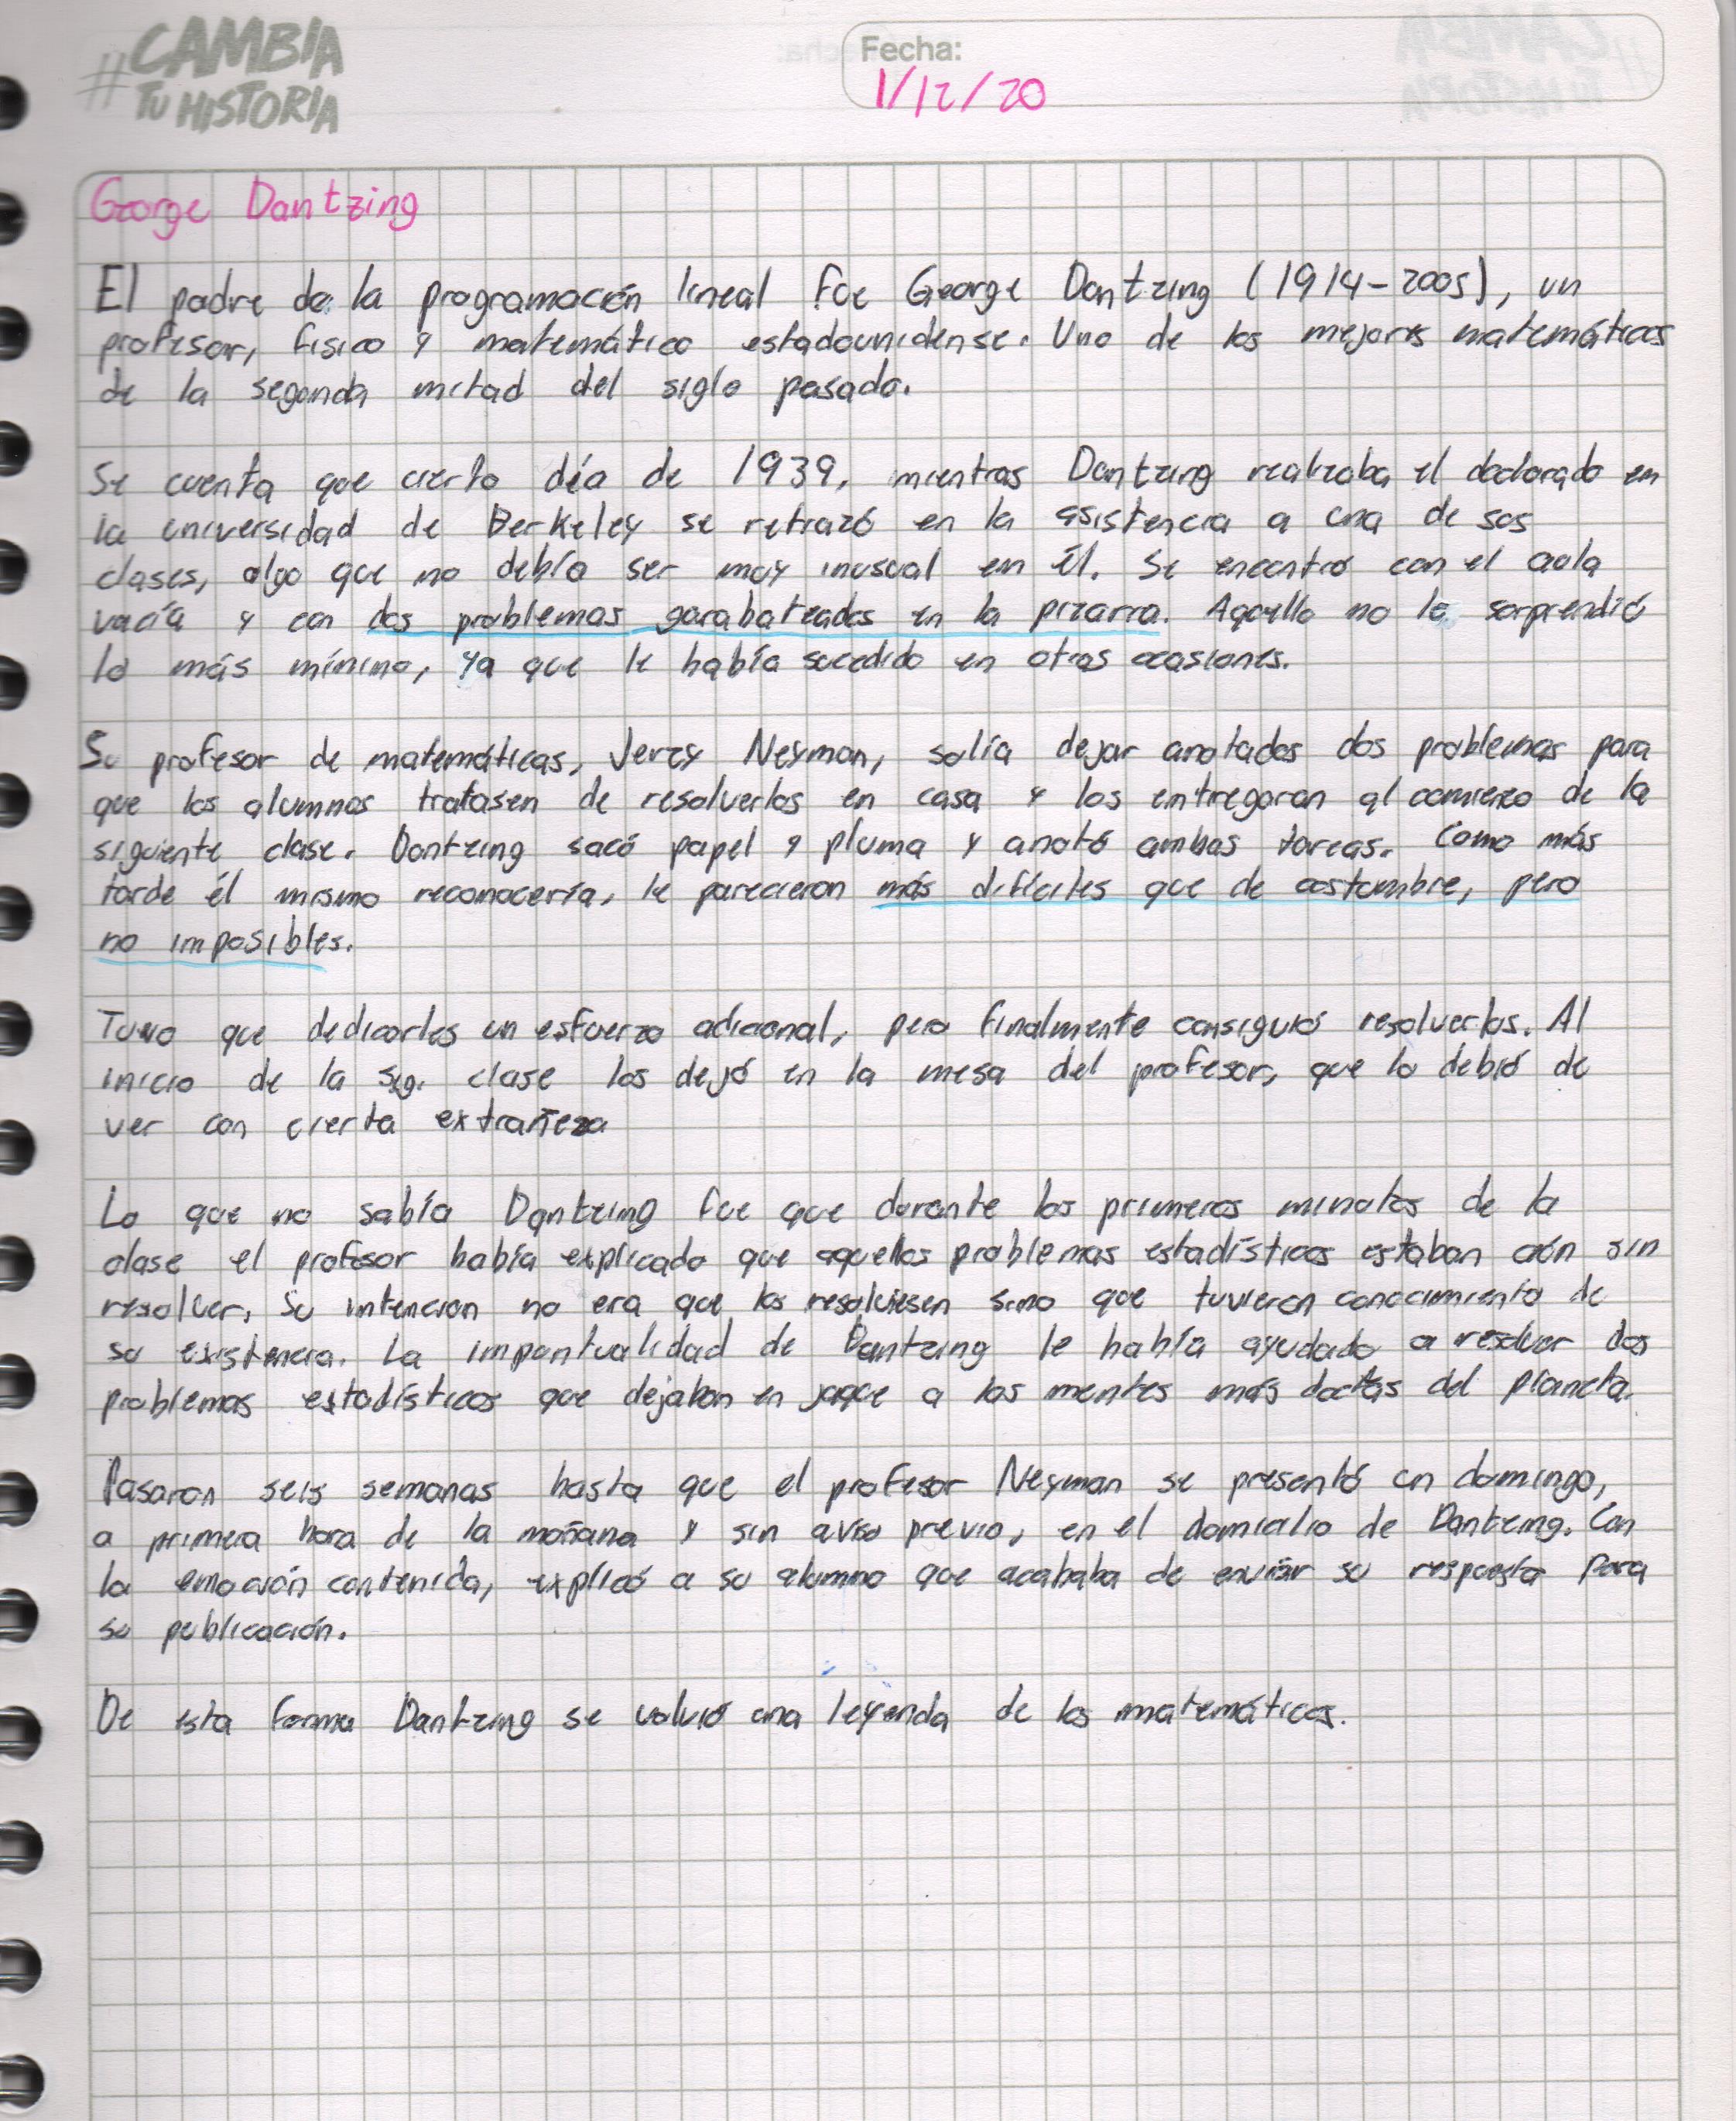 #CAMBIA
TU HISTORIA
Fecha:
1/12/20
George Dantzing
El padre de la programación lineal fue George Dantzing (1914-2005), un
profesor, físico y matemático estadounidense. Uno de los mejores matemáticos
de la segunda mitad del siglo pasado.
Se cuenta que cierto día de 1939, mientras Dantzing realizaba el doctorado en
la universidad de Berkeley se retrazó en la asistencia a una de sus
clases, algo que no debía ser muy inusual en él. Se encontró con el aula
vacía y con dos problemas garabateados en la pizarra. Aquello no le sorprendió
lo más mínimo, ya que le había sucedido en otras ocasiones.
Su profesor de matemáticas, Jerzy Neyman, solía dejar anotados dos problemas para
que los alumnos tratasen de resolverlos en casa y los entregaran al comienzo de la
siguiente clase. Dantzing sacó papel y pluma y anotó ambas tareas. Como más
tarde él mismo reconocería, le parecieron más difíciles que de costumbre, pero
no imposibles.
Tuvo que dedicarles un esfuerzo adicional, pero finalmente consiguió resolverlos. Al
inicio de la sig. clase los dejó en la mesa del profesor, que lo debió de
ver con cierta extrañeza
Lo que no sabía Dantzing fue que durante los primeros minutos de la
clase el profesor había explicado que aquellos problemas estadísticos estaban aún sin
resolver. Su intencion no era que los resolviesen sino que tuvieran conocimiento de
su existencia. La impuntualidad de Dantzing le había ayudado a resolver dos
problemas estadísticos que dejaban en jaque a las mentes más doctas del planeta.
Pasaron seis semanas hasta que el profesor Neyman se presentó un domingo,
a primera hora de la mañana y sin aviso previo, en el domicilio de Dantzing. Con
la emoción contenida, explicó a su alumno que acababa de enviar su respuesta para
su publicación.
De esta forma Dantzing se volvió una leyenda de los matemáticos.